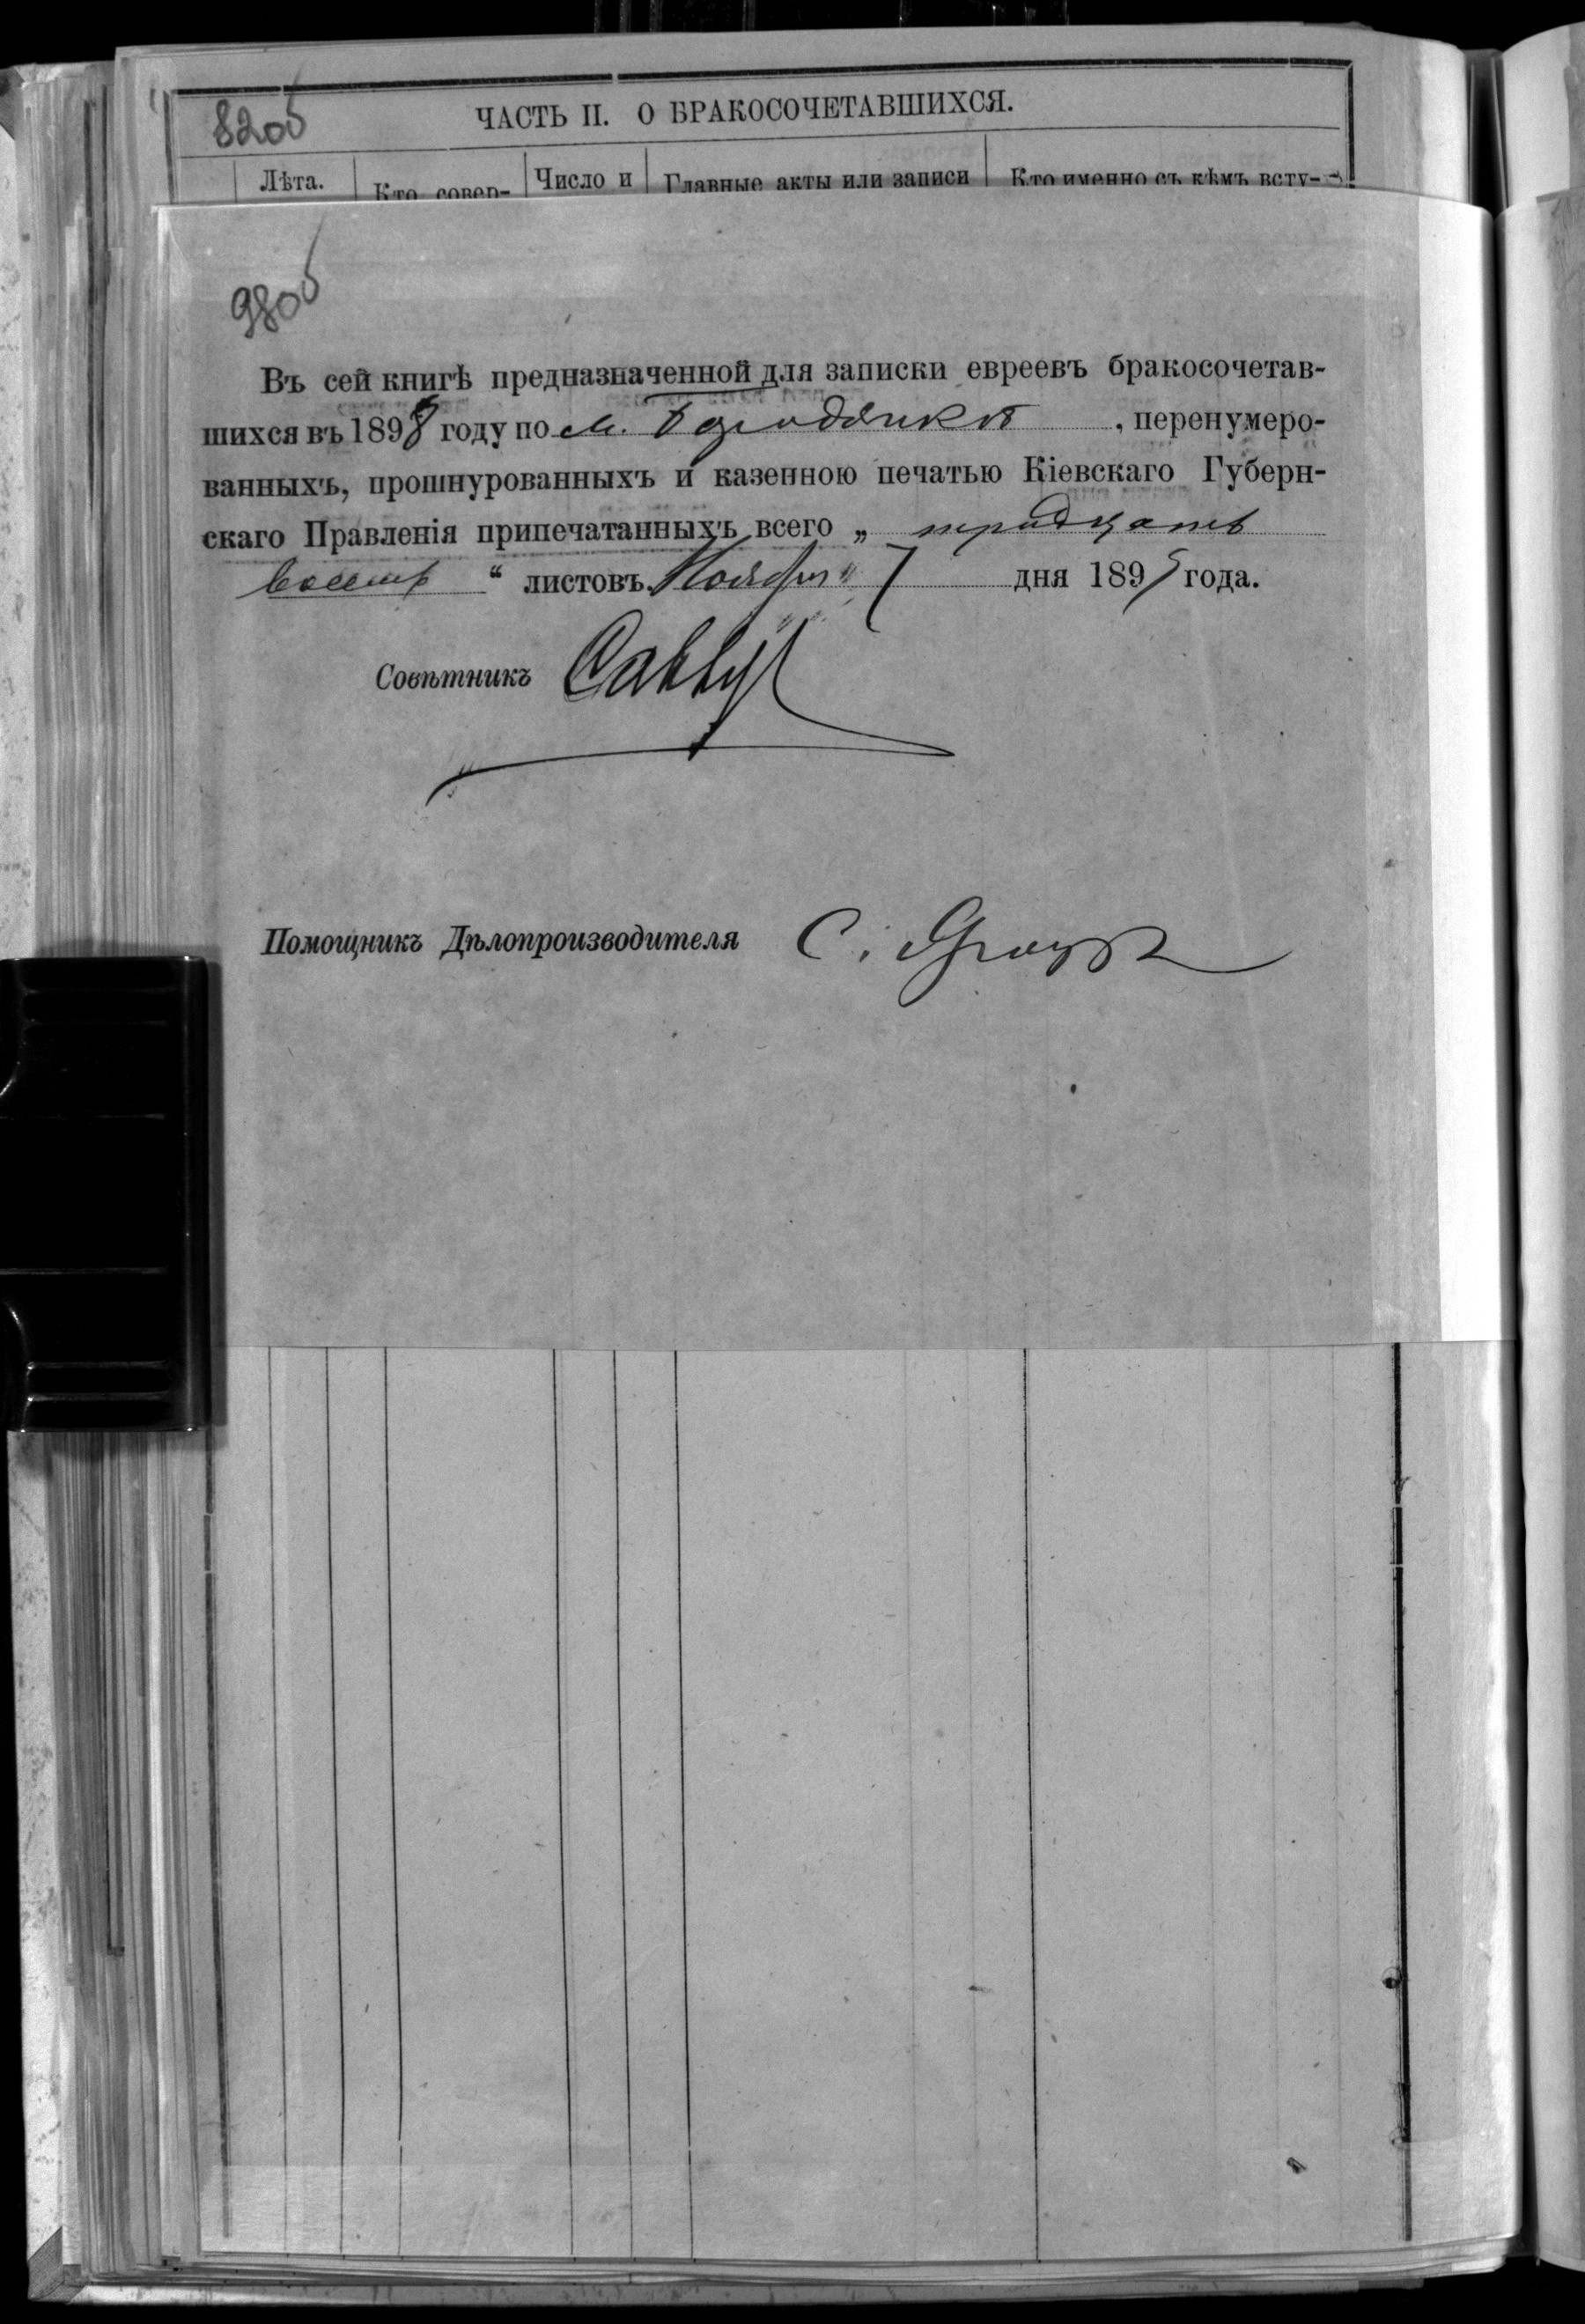 82об
ЧАСТЬ II. О БРАКОСОЧЕТАВШИХСЯ.
Лѣта. Кто совер- Число и Главные акты или записи Кто именно съ кѣмъ всту-
98об
Въ сей книгѣ предназначенной для записки евреевъ бракосочетав-
шихся въ 1898 году по м. Бородянкѣ, перенумеро-
ванныхъ, прошнурованныхъ и казенною печатью Кіевскаго Губерн-
скаго Правленія припечатанныхъ всего „ тридцать
восемь “ листовъ. Ноября 7 дня 1895 года.
Совѣтникъ
Помощникъ Дѣлопроизводителя С.